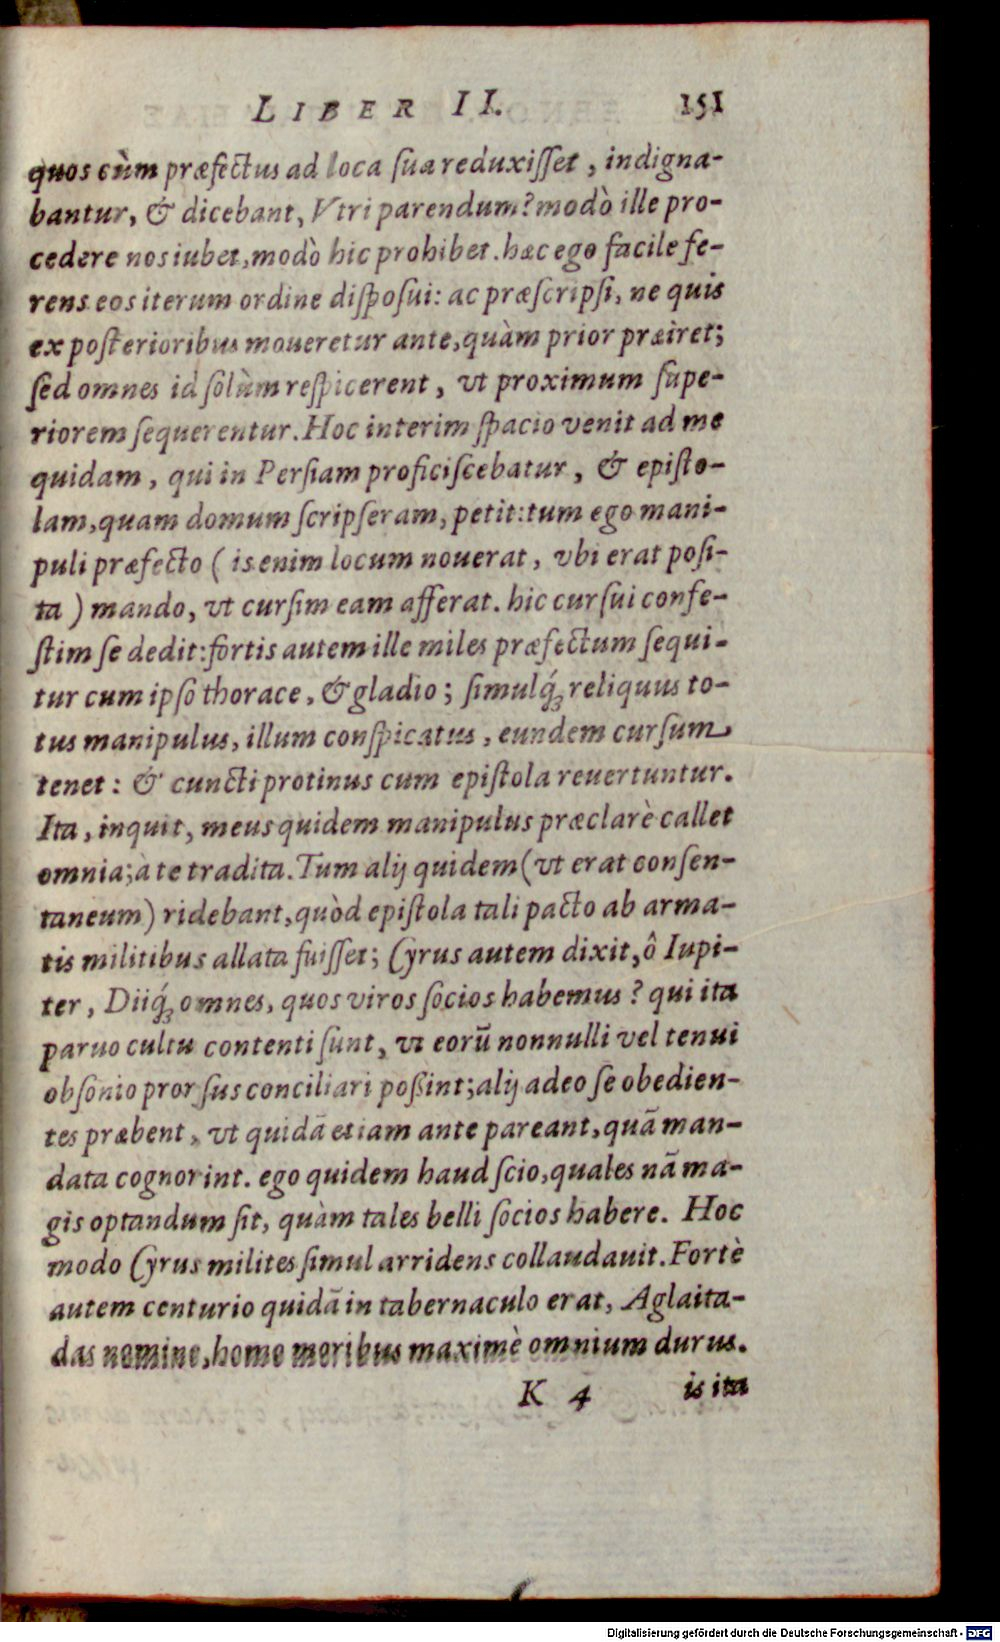 LIBER II. 151
quos cùm præfectus ad loca sua reduxisset, indigna-
bantur, & dicebant, Vtri parendum? modò ille pro-
cedere nos iubet, modò hic prohibet. hæc ego facile fe-
rens eos iterum ordine disposui: ac præscripsi, ne quis
ex posterioribus moueretur ante, quàm prior præiret;
sed omnes id solùm respicerent, vt proximum supe-
riorem sequerentur. Hoc interim spacio venit ad me
quidam, qui in Persiam proficiscebatur, & episto-
lam, quam domum scripseram, petit: tum ego mani-
puli præfecto ( is enim locum nouerat, vbi erat posi-
ta ) mando, vt cursim eam afferat. hic cursui confe-
stim se dedit: fortis autem ille miles præfectum sequi-
tur cum ipso thorace, & gladio; simulq́; reliquus to-
tus manipulus, illum conspicatus, eundem cursum
tenet: & cuncti protinus cum epistola reuertuntur.
Ita, inquit, meus quidem manipulus præclarè callet
omnia; à te tradita. Tum alij quidem (vt erat consen-
taneum) ridebant, quòd epistola tali pacto ab arma-
tis militibus allata fuisset; Cyrus autem dixit, ô Iupi-
ter, Diiq́; omnes, quos viros socios habemus? qui ita
paruo cultu contenti sunt, vt eorū nonnulli vel tenui
obsonio prorsus conciliari poßint; alij adeo se obedien-
tes præbent, vt quidā etiam ante pareant, quā man-
data cognorint. ego quidem haud scio, quales nā ma-
gis optandum sit, quàm tales belli socios habere. Hoc
modo Cyrus milites simul arridens collaudauit. Fortè
autem centurio quidā in tabernaculo erat, Aglaita-
das nomine, homo moribus maximè omnium durus.
K 4 is ita
Digitalisierung gefördert durch die Deutsche Forschungsgemeinschaft - DFG